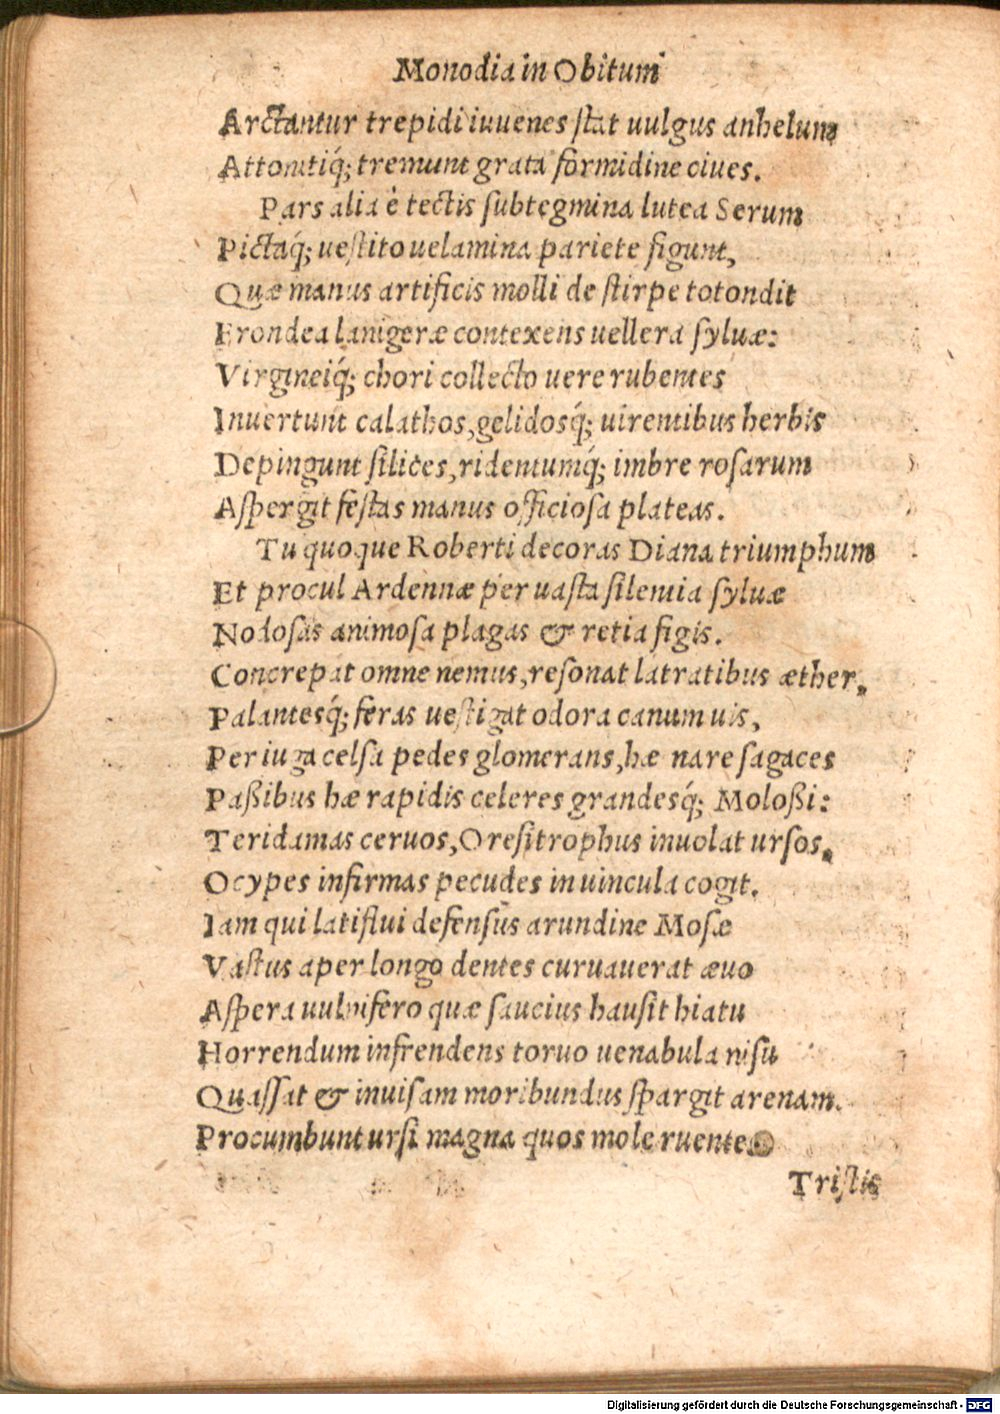 Monodia in Obitum
Arctantur trepidi iuuenes stat uulgus anhelum
Attonitiq́; tremunt grata formidine ciues.
Pars alia è tectis subtegmina lutea Serum
Pictaq́; uestito uelamina pariete figunt,
Quæ manus artificis molli de stirpe totondit
Frondea lanigeræ contexens uellera syluæ:
Virgineiq́; chori collecto uere rubentes
Inuertunt calathos, gelidosq́; uirentibus herbis
Depingunt silices, ridentumq́; imbre rosarum
Aspergit festas manus officiosa plateas.
Tu quoque Roberti decoras Diana triumphum
Et procul Ardennæ per uasta silentia syluæ
Nodosas animosa plagas & retia figis.
Concrepat omne nemus, resonat latratibus æther,
Palantesq́; feras uestigat odora canum uis,
Per iuga celsa pedes glomerans, hæ nare sagaces
Paßibus hæ rapidis celeres grandesq́; Moloßi:
Teridamas ceruos, Oresitrophus inuolat ursos,
Ocypes infirmas pecudes in uincula cogit.
Iam qui latiflui defensus arundine Mosæ
Vastus aper longo dentes curuauerat æuo
Aspera uulnifero quæ saucius hausit hiatu
Horrendum infrendens toruo uenabula nisu
Quassat & inuisam moribundus spargit arenam.
Procumbunt ursi magna quos mole ruentes
Tristis
Digitalisierung gefördert durch die Deutsche Forschungsgemeinschaft - DFG